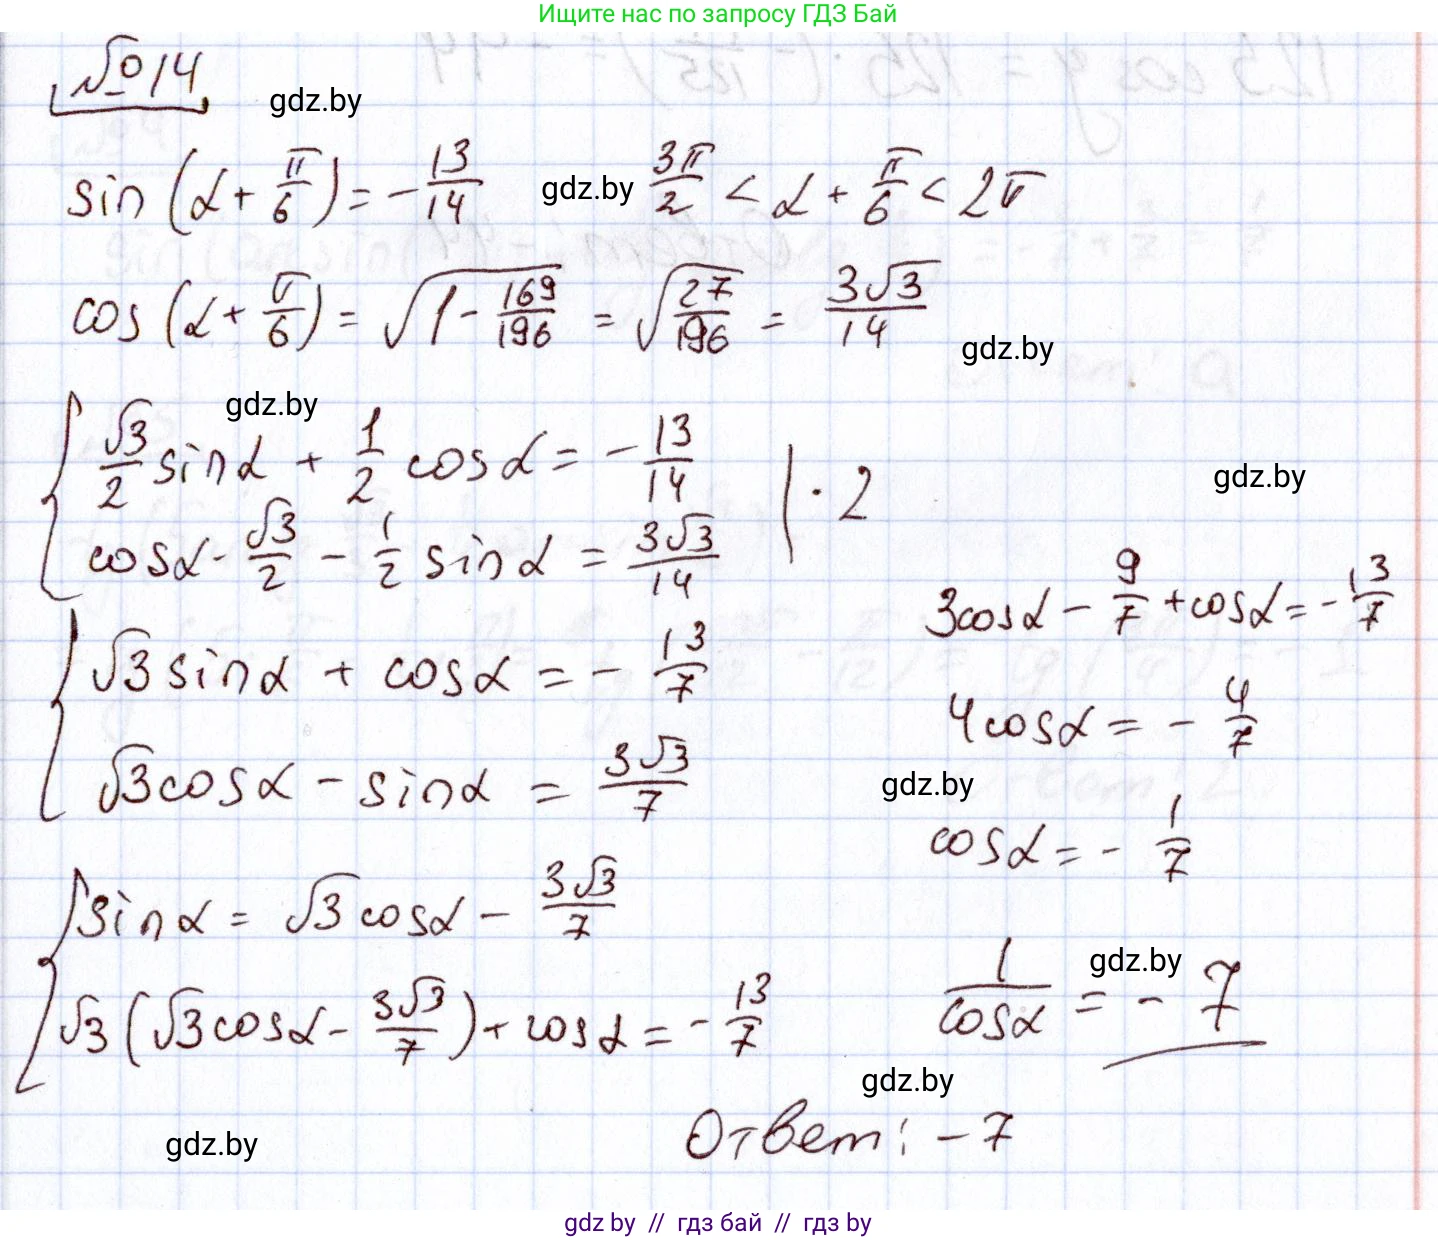 Ищите нас по запросу ГДЗ Бай
№14
gdz.by
sin(α + π/6) = - 13/14 gdz.by 3π/2 < α + π/6 < 2π
cos(α + π/6) = √(1 - 169/196) = √(27/196) = 3√3/14
gdz.by
gdz.by
{ √3/2 sinα + 1/2 cosα = - 13/14 | · 2
gdz.by
cosα · √3/2 - 1/2 sinα = 3√3/14
{ √3 sinα + cosα = - 13/7
√3 cosα - sinα = 3√3/7
{ sinα = √3 cosα - 3√3/7
√3(√3 cosα - 3√3/7) + cosα = - 13/7
3cosα - 9/7 + cosα = - 13/7
4cosα = - 4/7
gdz.by
cosα = - 1/7
gdz.by
1/cosα = - 7
gdz.by
Ответ: - 7
gdz.by
gdz by // гдз бай // гдз by